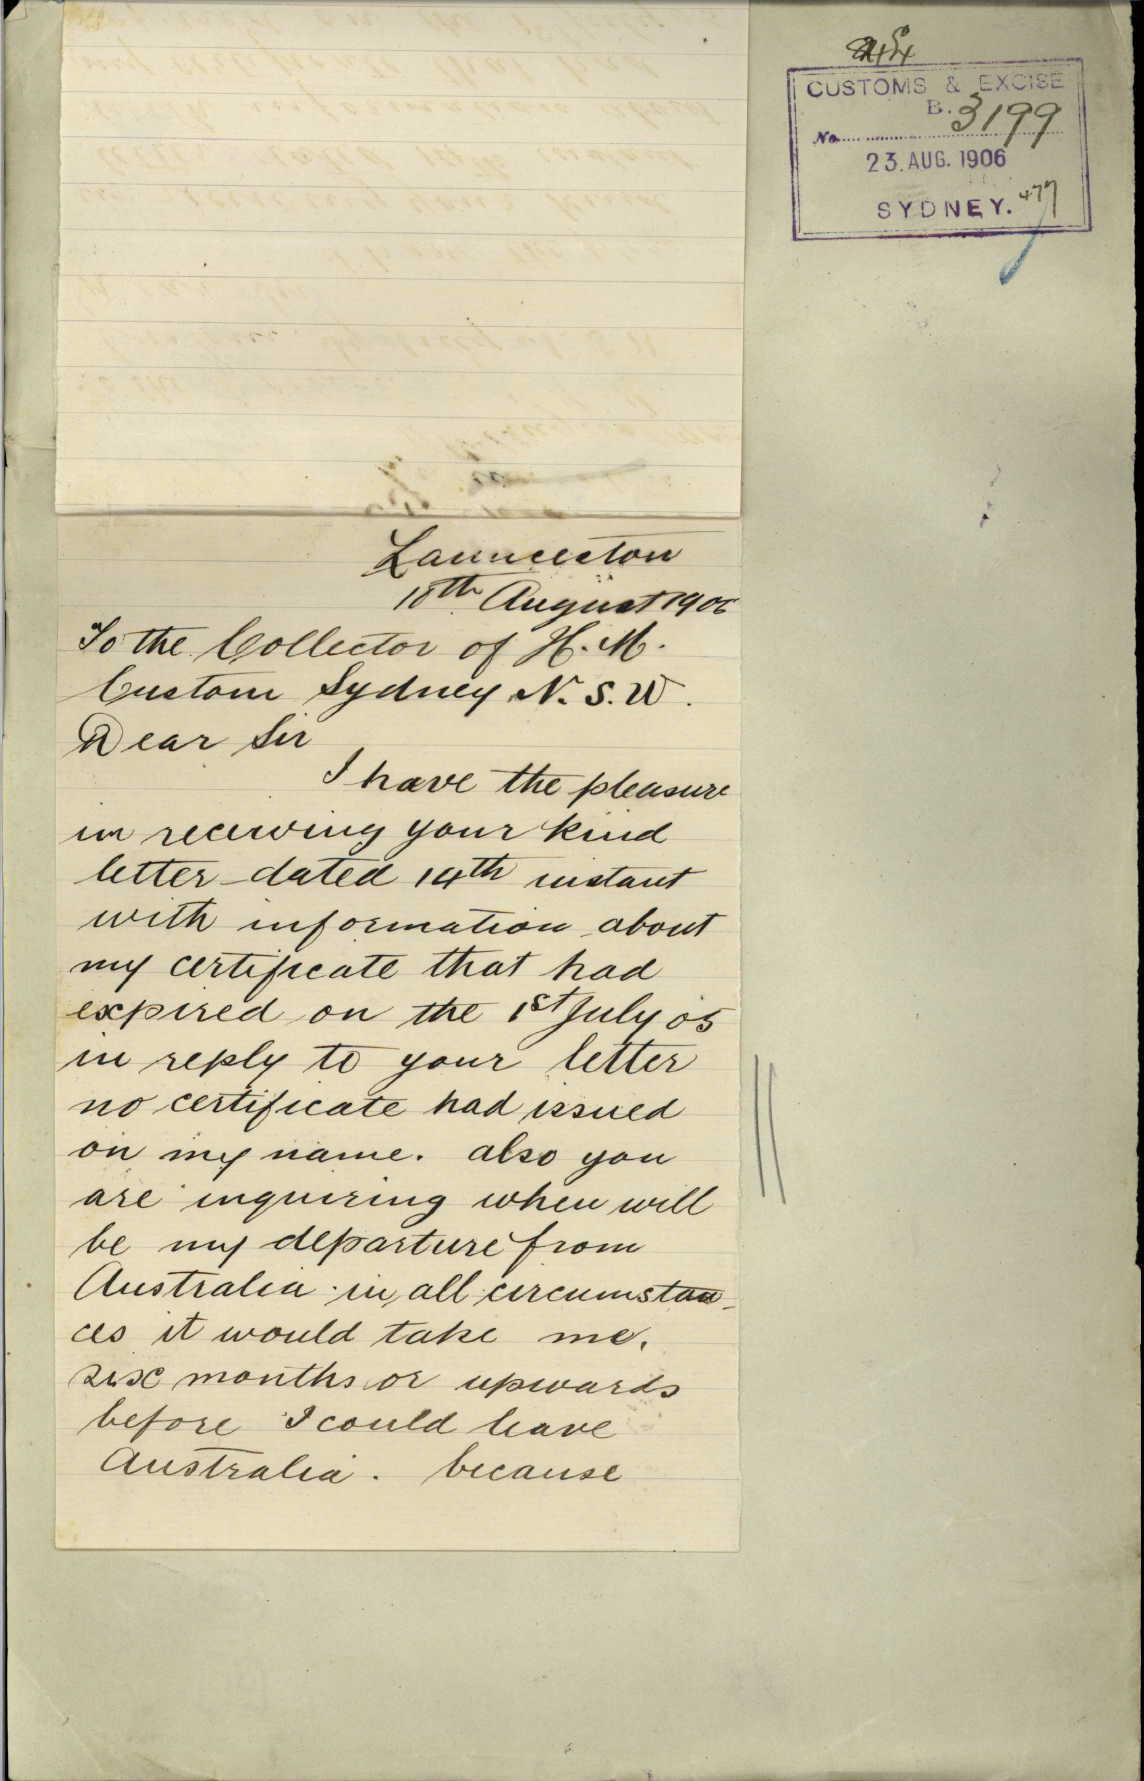 CUSTOMS & EXCISE
B. 3199
No
23. AUG. 1906
SYDNEY. 477
Launceston
18th August 1906
To the Collector of H. M.
Custom Sydney N. S. W.
Dear Sir
I have the pleasure
in receiving your kind
letter dated 14th instant
with information about
my certificate that had
expired on the 1st July 05
in reply to your letter
no certificate had issued
on my name. also you
are inquiring when will
be my departure from
Australia in all circumstan-
ces it would take me.
six months or upwards
before I could leave
Australia. because